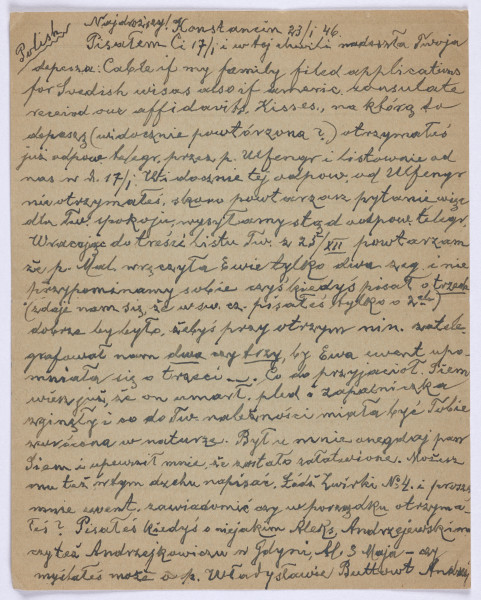 Polish
Najdroższy! Konstancin 23/I 46.
Pisałem Ci 17/I i w tej chwili nadeszła Twoja
depesza: Cable if my family filed applications
for Swedish visas also if americ. consulate
received our affidavits. Kisses, na którą to
depeszę (widocznie powtórzoną?) otrzymałeś
już odpow. telegr. przez p. Ulfengr i listownie od
nas w d. 17/I. Widocznie tej odpow. od Ulfengr
nie otrzymałeś, skoro powtarzasz pytanie więc
dla Tw. spokoju wysyłamy stąd odpow. telegr.
Wracając do treści listu Tw. z 25/XII powtarzam
że p. Mal. wręczyła Ewie tylko dwa zeg. i nie
przypominamy sobie czyś kiedyś pisał o trzech
(zdaje nam się, że w sw. cz. pisałeś tylko o 2-ch)
dobrze by było, żebyś przy otrzym. nin. zatele-
grafował nam dwa czy trzy, by Ewa ewent. upo-
mniała się o trzeci. Co do przyjaciół. Siem
wiesz już, że on umarł, pled i zapalniczka
zginęły i co do Tw. należności miała być Tobie
zwrócona w naturze. Był u mnie onegdaj pan
Siem i upewnił mnie, że zostało załatwione. Możesz
mu też w tym duchu napisać. Łódź Żwirki № 4. i proszę
mnie ewent. zawiadomić czy w porządku otrzyma-
łeś? Pisałeś kiedyś o niejakim Aleks. Andrzejewskim
czyteż Andrzejkowiczu w Gdyni, Ul. 3 Maja – czy
myślałeś może o p. Władysławie Buttowt Andrzej